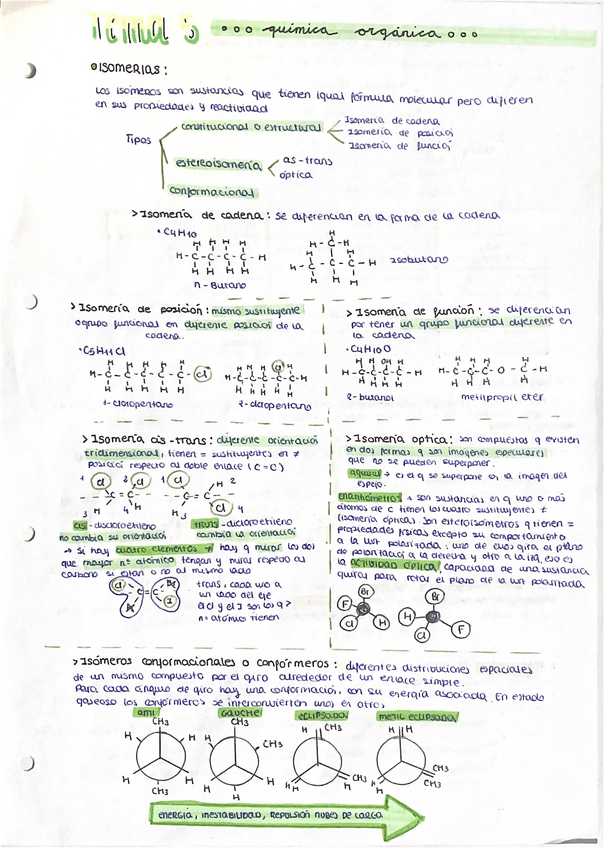 ••• química orgánica •••
• ISOMERIAS:
Los isómeros son sustancias que tienen igual fórmula molecular pero difieren
en sus propiedades y reactividad
Tipos
constitucional o estructural
Isomería de cadena
Isomería de posición
Isomería de función
estereoisomería
cis-trans
óptica
conformacional
> Isomería de cadena: se diferencian en la forma de la cadena
• C4H10
n-Butano
isobutano
> Isomería de posición: mismo sustituyente
o grupo funcional en diferente posición de la
cadena.
• C5H11Cl
1-cloropentano
2-cloropentano
> Isomería de función: se diferencian
por tener un grupo funcional diferente en
la cadena
• C4H10O
2-butanol
metilpropil eter
> Isomería cis-trans: diferente orientación
tridimensional, tienen = sustituyentes en ≠
posición respecto al doble enlace (C=C)
cis-dicloroetileno
no cambia su orientación
trans-dicloroetileno
cambia la orientación
→ Si hay cuatro elementos ≠ hay q mirar los dos
que mayor nº atómico tengan y mirar respecto al
carbono si están o no al mismo lado
trans, cada uno a
un lado del eje
nº atómico tienen
> Isomería optica: son compuestos q existen
en dos formas q son imágenes especulares
que no se pueden superponer.
aquiral → es el q se superpone a la imagen del
espejo.
enantiómeros → son sustancias en q uno o más
átomos de c tienen los cuatro sustituyentes ≠
(isomería óptica). Son estereoisómeros q tienen =
propiedades físicas excepto su comportamiento
a la luz polarizada: uno de ellos gira el plano
de polarización a la derecha y otro a la izq, eso es
la actividad óptica, capacidad de una sustancia
quiral para rotar el plano de la luz polarizada
Br
F
Cl
H
Br
H
Cl
F
> Isómeros conformacionales o confórmeros: diferentes distribuciones espaciales
de un mismo compuesto por el giro alrededor de un enlace simple.
Para cada ángulo de giro hay una conformación, con su energía asociada. En estado
gaseoso los confórmeros se interconvierten unos en otros,
anti
gauche
eclipsada
metil eclipsada
ENERGÍA, INESTABILIDAD, REPULSIÓN NUBES DE CARGA